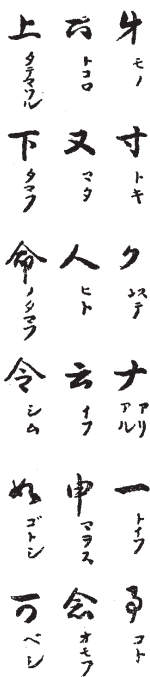 牛 モノ
寸 トキ
ク ステ
ナ アリ アル
一 トイフ
事 コト
トコロ
又 マタ
人 ヒト
云 イフ
申 マヲス
念 オモフ
上 タテマツル
下 タマフ
命 ノタマフ
令 シム
如 ゴトシ
可 ベシ